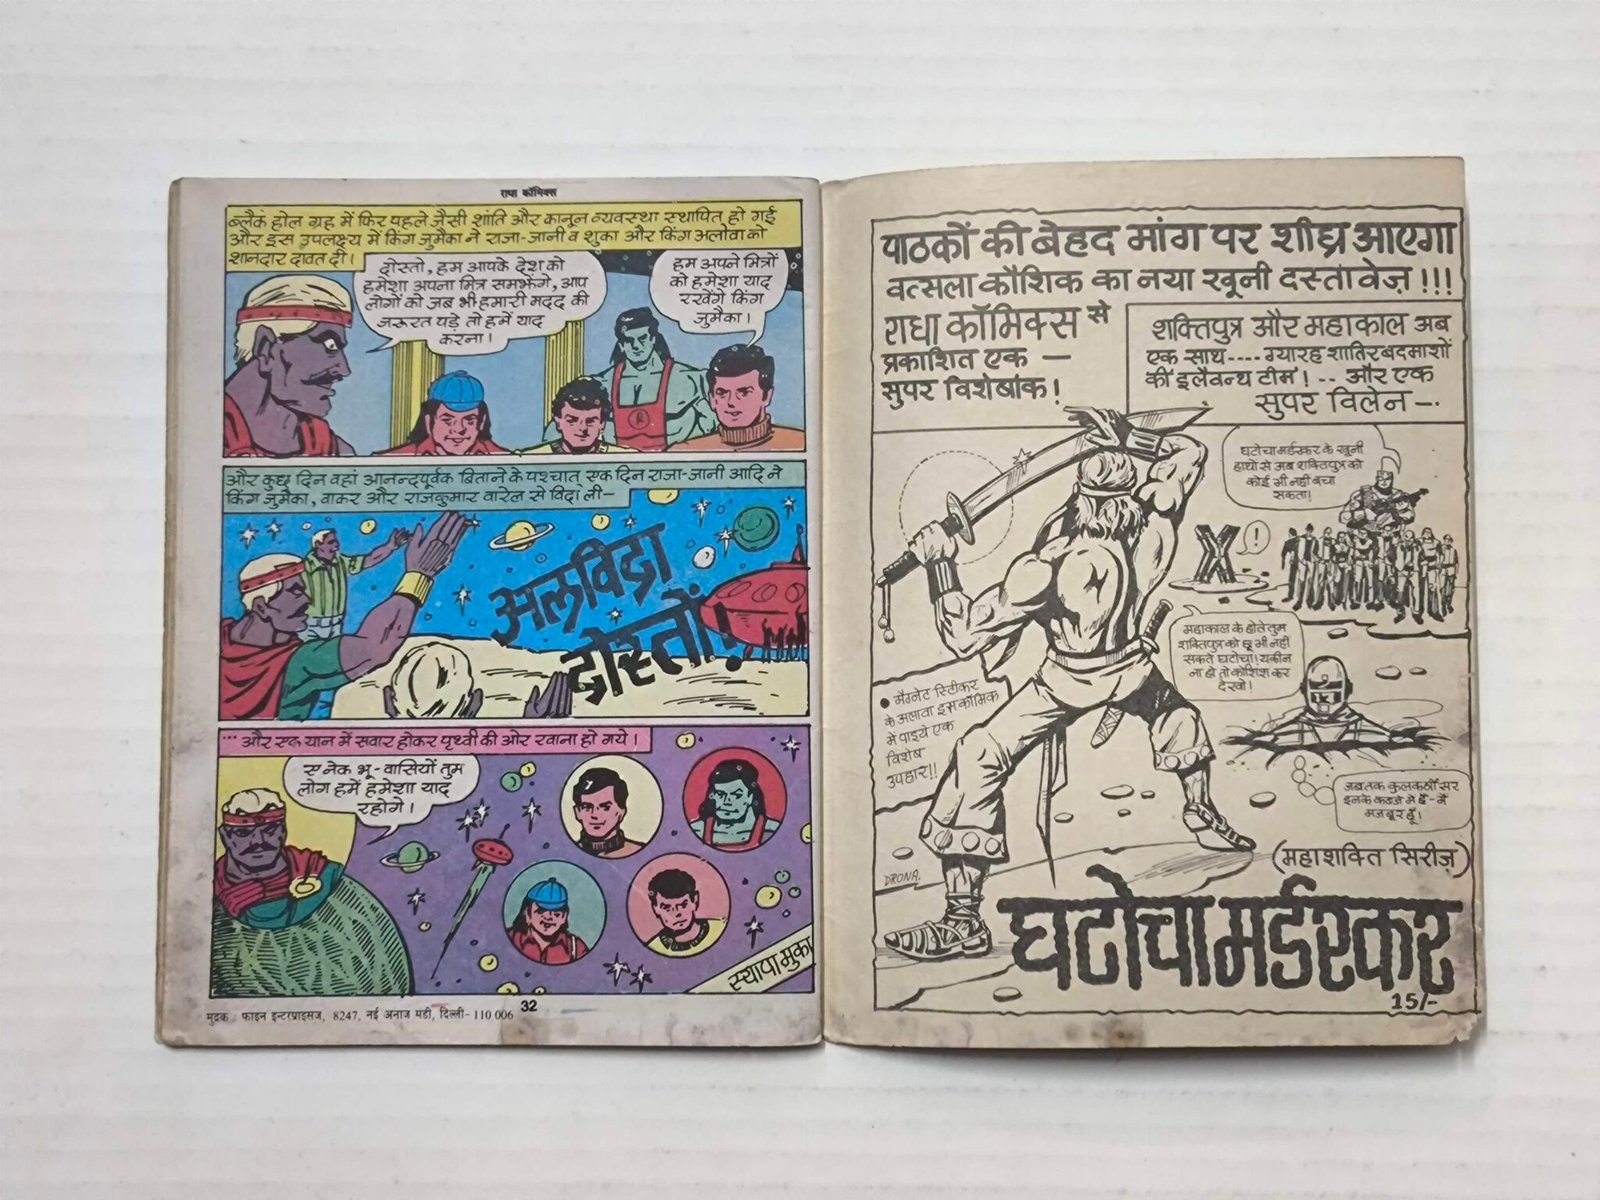 राधा कॉमिक्स
ब्लैक होल ग्रह में फिर पहले जैसी शांति और कानून व्यवस्था स्थापित हो गई
और इस उपलक्ष्य में किंग जुमैका ने राजा-जानी व शुका और किंग अलोवा को
शानदार दावत दी।
दोस्तो, हम आपके देश को
हमेशा अपना मित्र समझेंगे, आप
लोगों को जब भी हमारी मदद की
जरूरत पड़े तो हमें याद
करना।
हम अपने मित्रों
को हमेशा याद
रखेंगे किंग
जुमैका।
और कुछ दिन वहां आनन्दपूर्वक बिताने के पश्चात् एक दिन राजा-जानी आदि ने
किंग जुमैका, वाकर और राजकुमार वारेल से विदा ली-
अलविदा
दोस्तों!
... और एक यान में सवार होकर पृथ्वी की ओर रवाना हो गये।
ऐ नेक भू-वासियों तुम
लोग हमें हमेशा याद
रहोगे।
32
मुद्रक : फाइन इन्टरप्राइसज, 8247, नई अनाज मंडी, दिल्ली-110 006
पाठकों की बेहद मांग पर शीघ्र आएगा
वत्सला कौशिक का नया खूनी दस्तावेज़ !!!
राधा कॉमिक्स से
प्रकाशित एक -
सुपर विशेषांक!
शक्तिपुत्र और महाकाल अब
एक साथ---- ग्यारह शातिर बदमाशों
की 'इलैवन्थ टीम'! -- और एक
सुपर विलेन -.
घटोचा मर्डरकर के खूनी
हाथो से अब शक्तिपुत्र को
कोई भी नही बचा
सकता!
!
महाकाल के होते तुम
शक्तिपुत्र को छू भी नहीं
सकते घटोचा! यकीन
ना हो तो कोशिश कर
देखो!
● मैगनेट स्टिकर
के अलावा इस कॉमिक
में पाइये एक
विशेष
उपहार!!
जबतक कुलकर्णी सर
इनके कब्जे में हैं- मैं
मजबूर हूँ!
(महाशक्ति सिरीज़)
DRONA.
घटोचा मर्डरकर
15/-